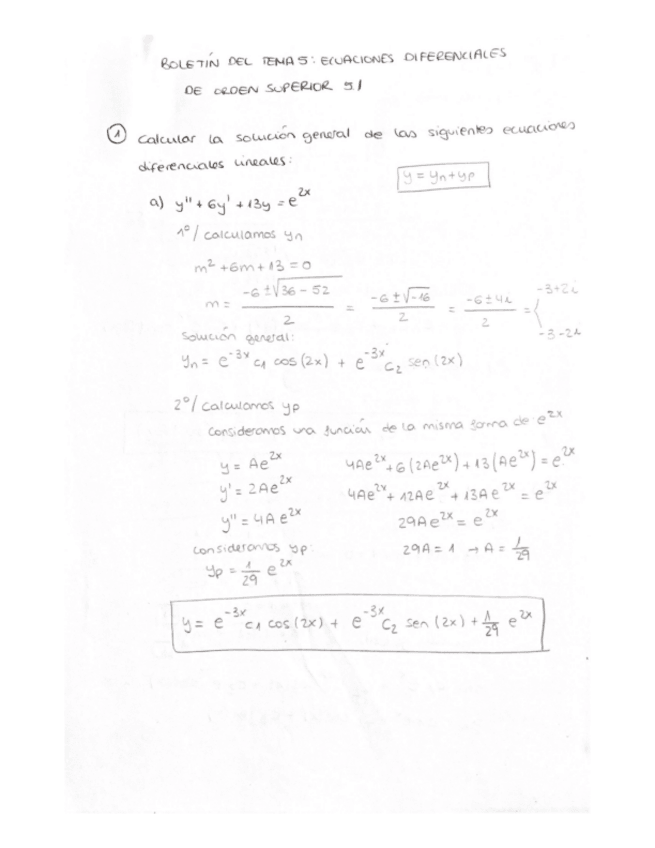 BOLETÍN DEL TEMA 5: ECUACIONES DIFERENCIALES
DE ORDEN SUPERIOR 5.1
① Calcular la solución general de las siguientes ecuaciones
diferenciales lineales:
y = yn+yp
a) y'' + 6y' + 13y = e^2x
1º/ calculamos yn
m² + 6m + 13 = 0
m = (-6 ± √36 - 52)/2 = (-6 ± √-16)/2 = (-6 ± 4i)/2 = { -3+2i
-3-2i
Solución general:
yn = e^-3x c1 cos(2x) + e^-3x c2 sen(2x)
2º/ Calculamos yp
Consideramos una función de la misma forma de e^2x
y = Ae^2x 4Ae^2x + 6(2Ae^2x) + 13(Ae^2x) = e^2x
y' = 2Ae^2x 4Ae^2x + 12Ae^2x + 13Ae^2x = e^2x
y'' = 4Ae^2x 29Ae^2x = e^2x
consideramos yp: 29A = 1 → A = 1/29
yp = 1/29 e^2x
y = e^-3x c1 cos(2x) + e^-3x c2 sen(2x) + 1/29 e^2x